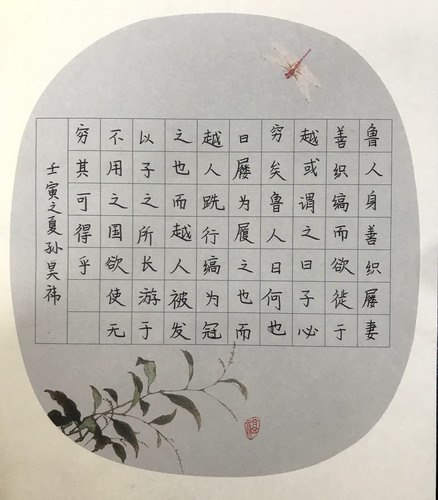 鲁人身善织屦妻
善织缟而欲徙于
越或谓之曰子必
穷矣鲁人曰何也
曰屦为履之也而
越人跣行缟为冠
之也而越人被发
以子之所长游于
不用之国欲使无
穷其可得乎
壬寅之夏孙昊祎
福